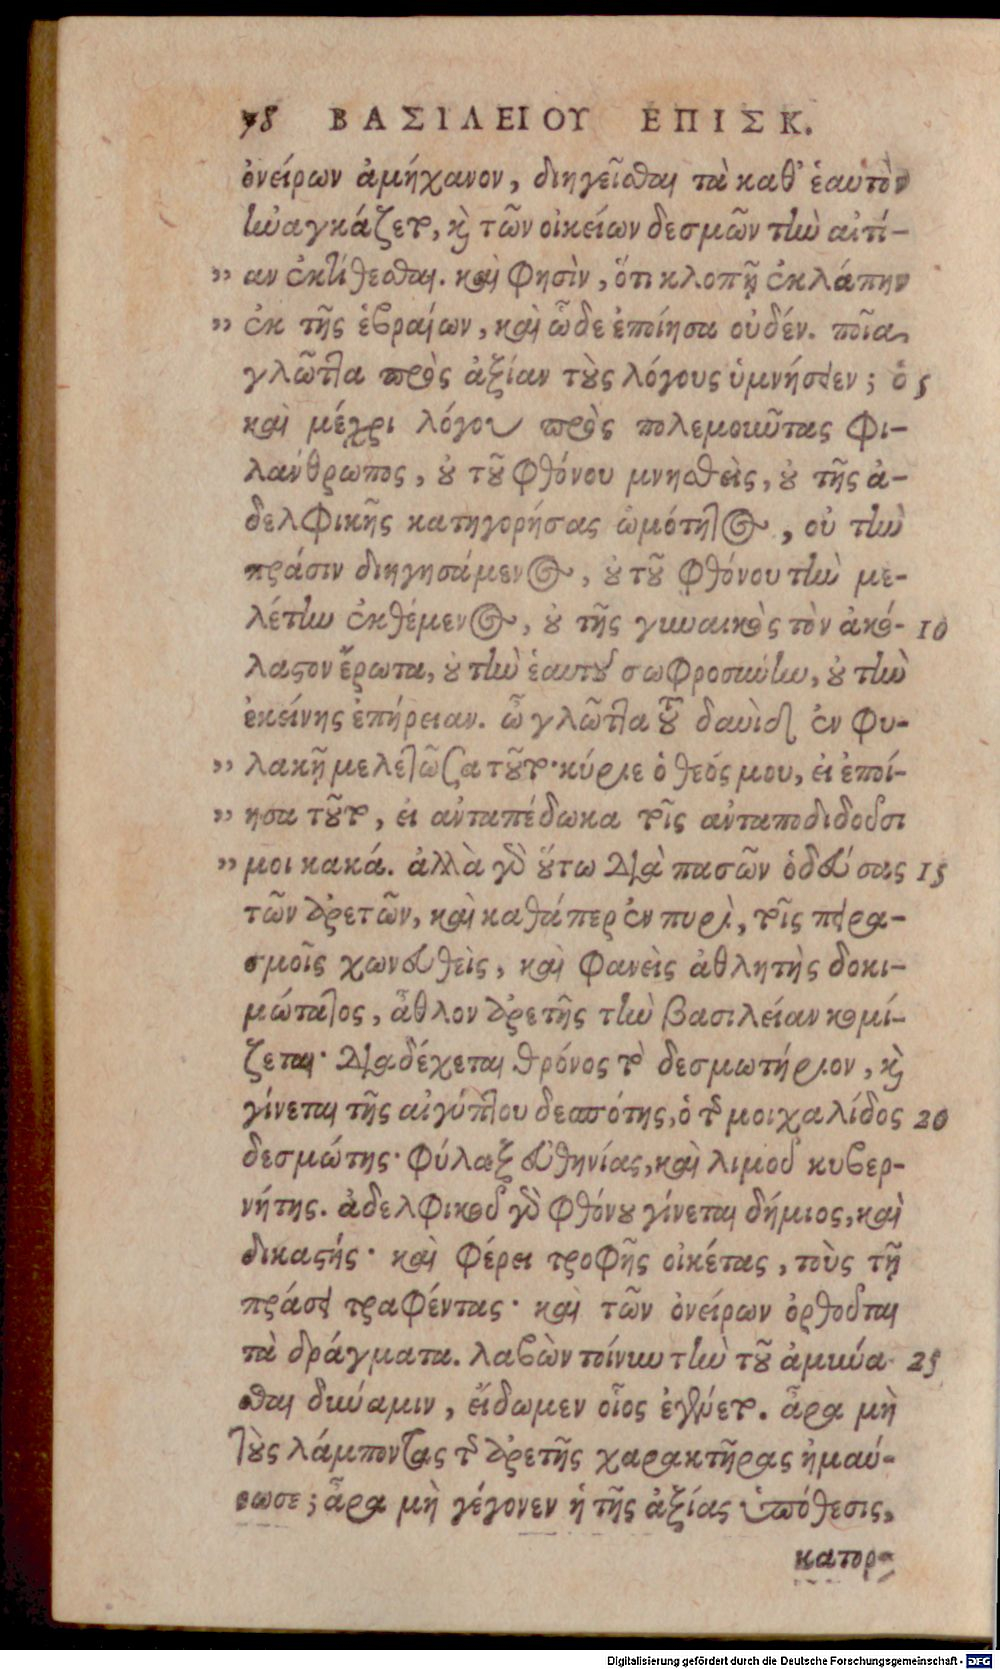 78 ΒΑΣΙΛΕΙΟΥ ΕΠΙΣΚ.
ὀνείρων ἀμήχανον, διηγεῖσθαι τὰ καθ' ἑαυτὸν
ἠναγκάζετο, καὶ τῶν οἰκείων δεσμῶν τὴν αἰτί-
" αν ἐκτίθεσθαι. καὶ φησὶν, ὅτι κλοπῇ ἐκλάπην
" ἐκ τῆς ἑβραίων, καὶ ὧδε ἐποίησα οὐδέν. ποῖα
γλῶττα πρὸς ἀξίαν τοὺς λόγους ὑμνήσειεν; ὁ 5
καὶ μέχρι λόγου πρὸς πολεμοῦντας φι-
λάνθρωπος, οὐ τοῦ φθόνου μνησθεὶς, οὐ τῆς ἀ-
δελφικῆς κατηγορήσας ὠμότητος, οὐ τὴν
πράσιν διηγησάμενος, οὐ τοῦ φθόνου τὴν με-
λέτην ἐκθέμενος, οὐ τῆς γυναικὸς τὸν ἀκό- 10
λαστον ἔρωτα, οὐ τὴν ἑαυτοῦ σωφροσύνην, οὐ τὴν
ἐκείνης ἐπήρειαν. ὦ γλῶττα τοῦ δαυὶδ ἐν φυ-
" λακῇ μελετῶσα τοῦτο· κύριε ὁ θεός μου, εἰ ἐποί-
" ησα τοῦτο, εἰ ἀνταπέδωκα τοῖς ἀνταποδιδοῦσι
" μοι κακά. ἀλλὰ γὰρ οὕτω διὰ πασῶν ὁδεύσας 15
τῶν ἀρετῶν, καὶ καθάπερ ἐν πυρὶ, τοῖς πειρα-
σμοῖς χωνευθεὶς, καὶ φανεὶς ἀθλητὴς δοκι-
μώτατος, ἆθλον ἀρετῆς τὴν βασιλείαν κομί-
ζεται· διαδέχεται θρόνος τὸ δεσμωτήριον, καὶ
γίνεται τῆς αἰγύπτου δεσπότης, ὁ τῆς μοιχαλίδος 20
δεσμώτης· φύλαξ εὐθηνίας, καὶ λιμοῦ κυβερ-
νήτης. ἀδελφικοῦ γὰρ φθόνου γίνεται δήμιος, καὶ
δικαστής· καὶ φέρει τροφῆς οἰκέτας, τοὺς τῇ
πράσει τραφέντας· καὶ τῶν ὀνείρων ὀρθοῦται
τὰ δράγματα. λαβὼν τοίνυν τὴν τοῦ ἀμύνα- 25
σθαι δύναμιν, εἴδωμεν οἷος ἐγένετο. ἆρα μὴ
τοὺς λάμποντας τῆς ἀρετῆς χαρακτῆρας ἠμαύ-
ρωσε; ἆρα μὴ γέγονεν ἡ τῆς ἀξίας ὑπόθεσις,
κατορ-
Digitalisierung gefördert durch die Deutsche Forschungsgemeinschaft - DFG